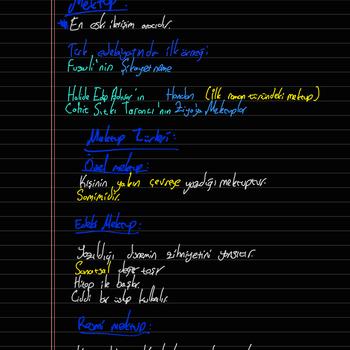 Mektup:
En eski iletişim aracıdır.
Türk edebiyatında ilk örneği
Fuzuli'nin Şikayetname
Halide Edip Adıvar'ın Handan (ilk roman türündeki mektup)
Cahit Sıtkı Tarancı'nın Ziya'ya Mektuplar
Mektup Türleri:
Özel mektup:
Kişinin yakın çevreye yazdığı mektuptur.
Samimidir.
Edebi Mektup:
Yazıldığı dönemin zihniyetini yansıtır.
Sanatsal değer taşır
Hitap ile başlar.
Ciddi bir üslup kullanılır.
Resmi mektup: